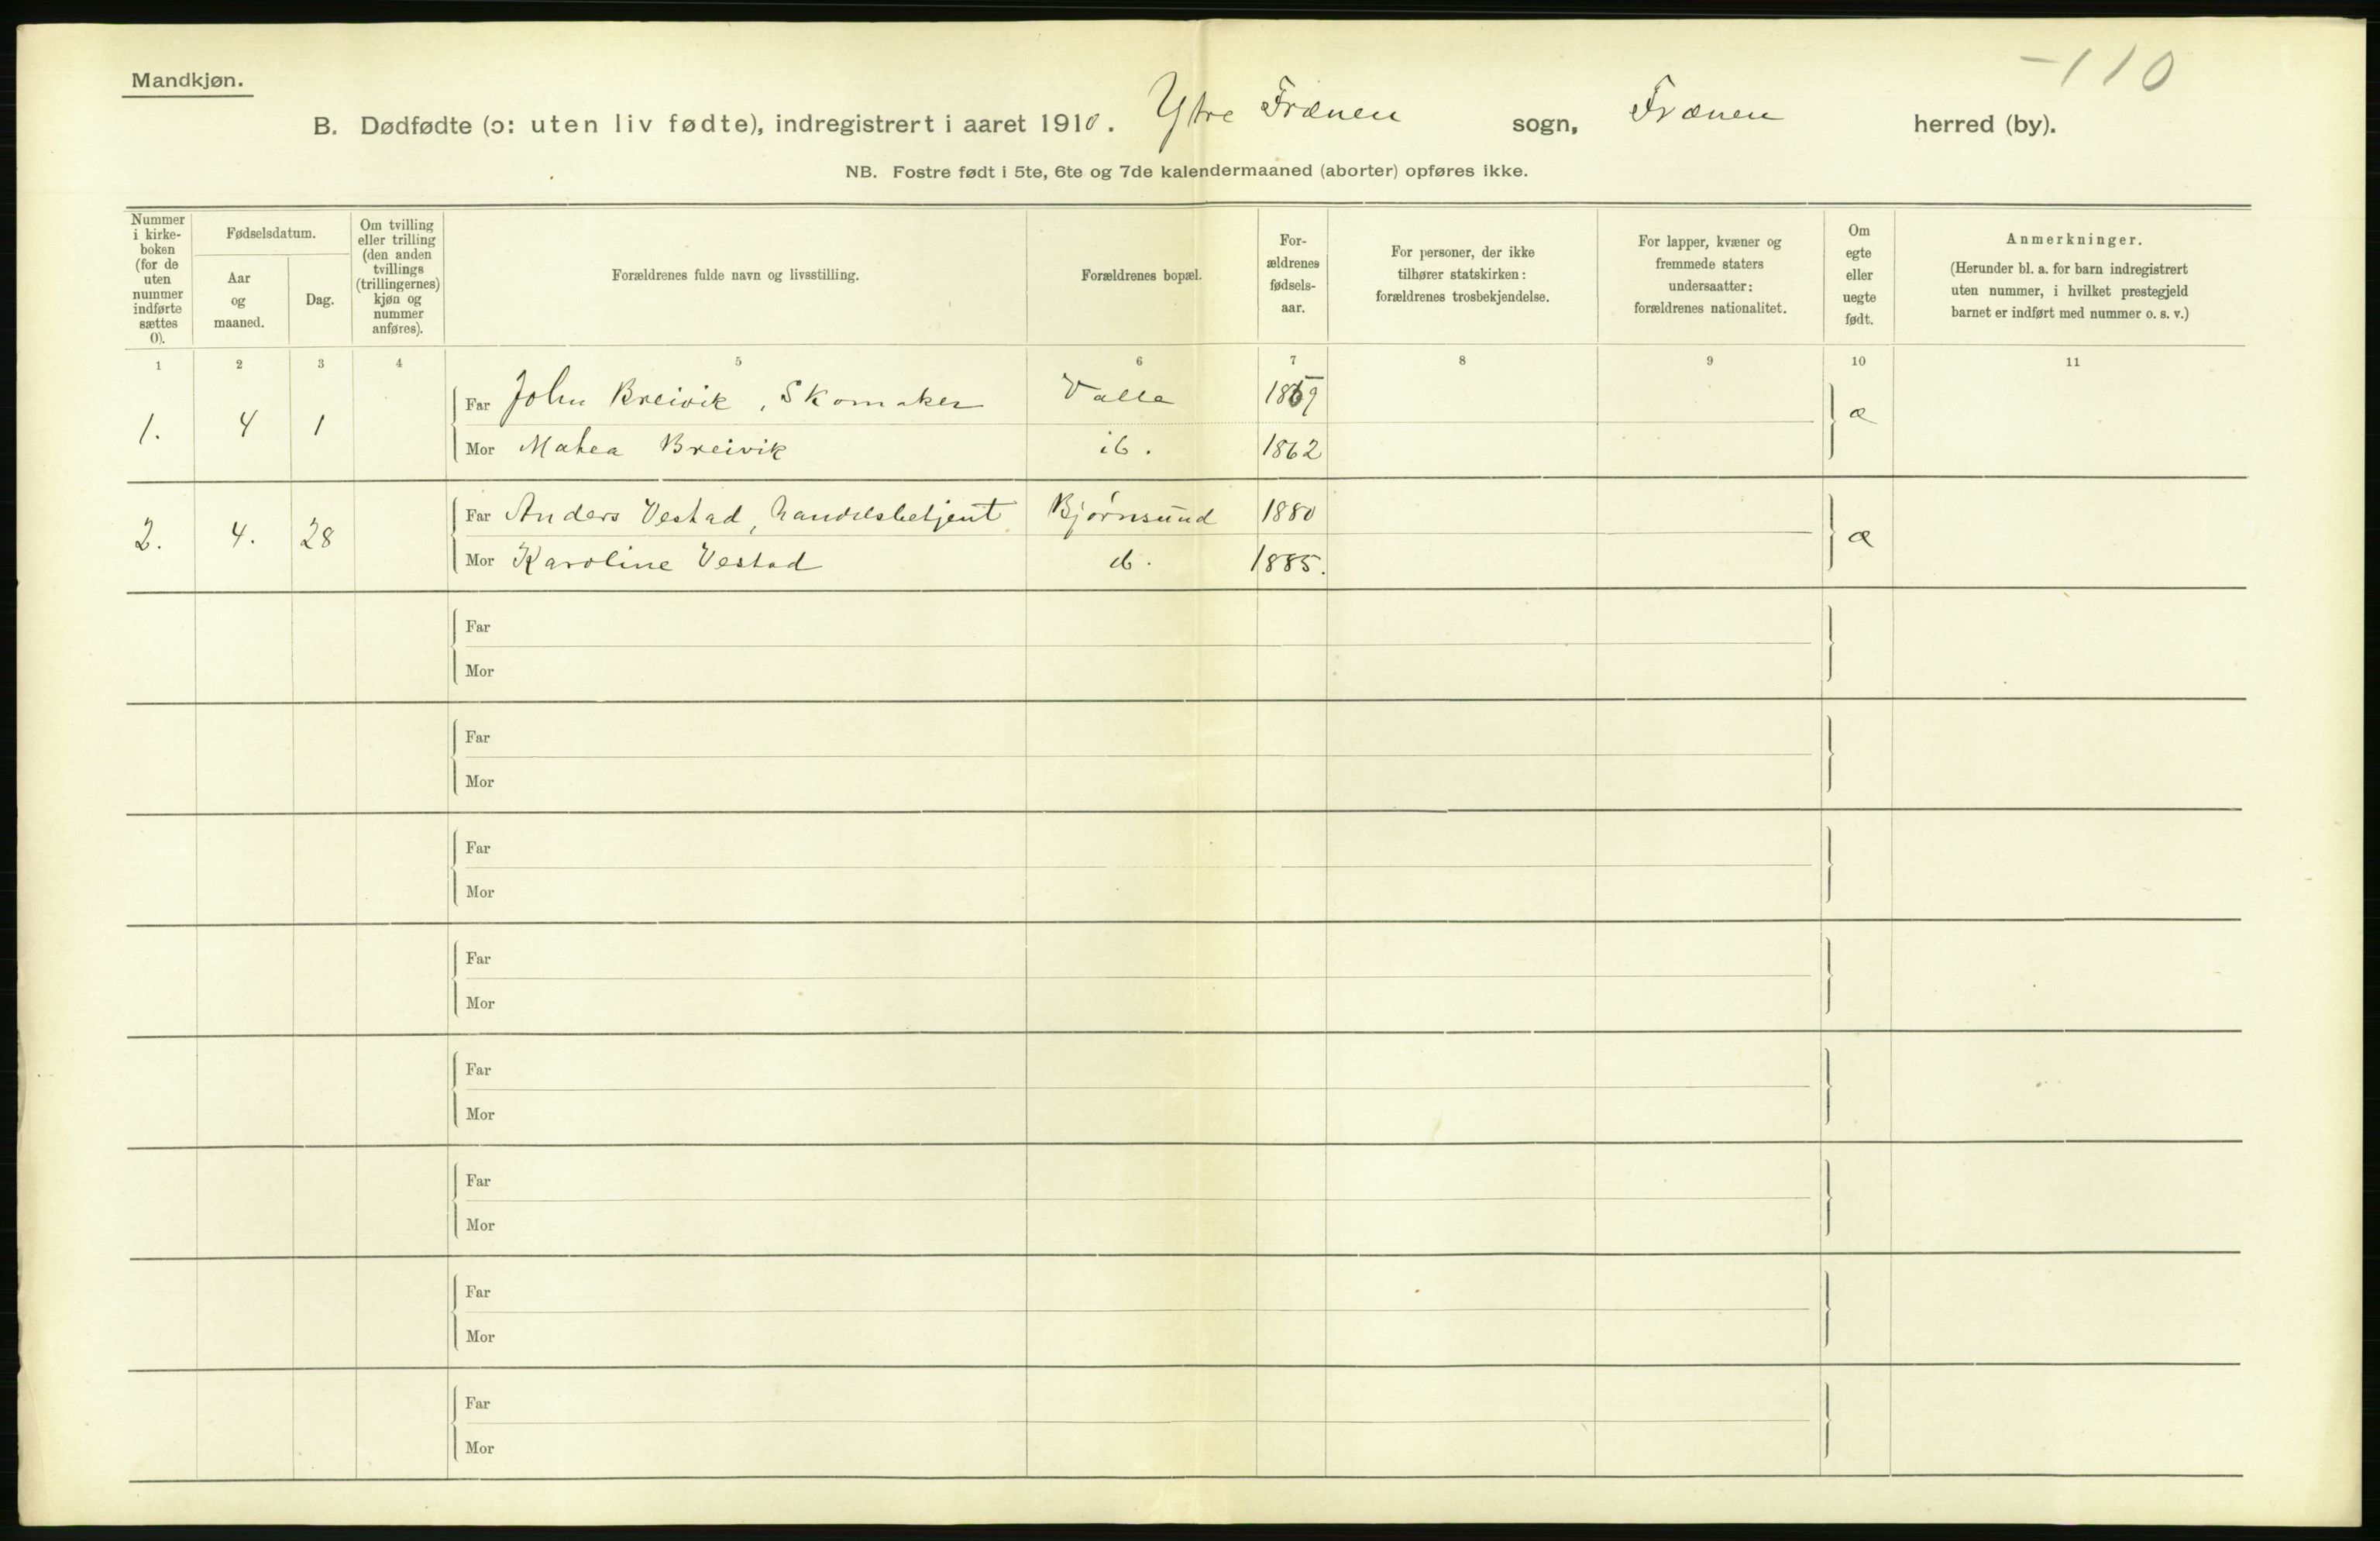 -110
Mandkjøn.
B. Dødfødte (ɔ: uten liv fødte), indregistrert i aaret 1910. Ytre Frænen sogn, Frænen herred (by).
NB. Fostre født i 5te, 6te og 7de kalendermaaned (aborter) opføres ikke.
Nummer
i kirke-
boken
(for de
uten
nummer
indførte
sættes
0).
Fødselsdatum.
Aar
og
maaned.
Dag.
Om tvilling
eller trilling
(den anden
tvillings
(trillingernes)
kjøn og
nummer
anføres).
Forældrenes fulde navn og livsstilling.
Forældrenes bopæl.
For-
ældrenes
fødsels-
aar.
For personer, der ikke
tilhører statskirken:
forældrenes trosbekjendelse.
For lapper, kvæner og
fremmede staters
undersaatter:
forældrenes nationalitet.
Om
egte
eller
uegte
født.
Anmerkninger.
(Herunder bl. a. for barn indregistrert
uten nummer, i hvilket prestegjeld
barnet er indført med nummer o. s. v.)
1 2 3 4 5 6 7 8 9 10 11
1. 4 1 Far John Breivik, Skomaker Valle 1869 æ
Mor Mahea Breivik ib. 1862
2. 4. 28 Far Anders Vestad, handelsbetjent Bjørnsund 1880 æ
Mor Karoline Vestad ib. 1885.
Far
Mor
Far
Mor
Far
Mor
Far
Mor
Far
Mor
Far
Mor
Far
Mor
Far
Mor